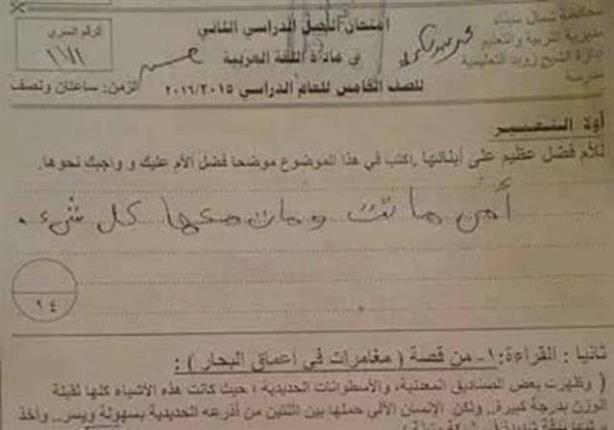 محافظة شمال سيناء
مديرية التربية والتعليم
إدارة الشيخ زويد التعليمية
مدرسة
امتحان الفصل الدراسي الثاني
في مادة اللغة العربية
للصف الخامس للعام الدراسي ٢٠١٦/٢٠١٥
الرقم السري
الزمن: ساعتان ونصف
أولا التعبير
للأم فضل عظيم على أبنائها. اكتب في هذا الموضوع موضحا فضل الأم عليك وواجبك نحوها.
أمى ماتت ومات معها كل شىء.
١٤
ثانيا: القراءة: ١- من قصة (مغامرات في أعماق البحار):
(وظهرت بعض الصناديق المعدنية، والأسطوانات الحديدية؛ حيث كانت هذه الأشياء كلها ثقيلة
الوزن بدرجة كبيرة.. ولكن الإنسان الآلي حملها بين اثنتين من أذرعه الحديدية بسهولة ويسر.. وأخذ